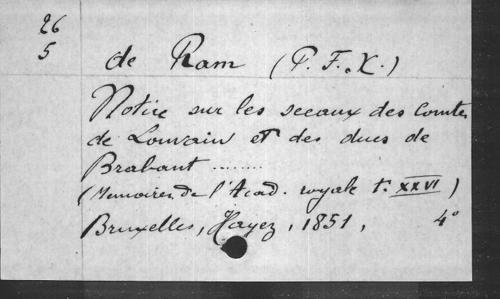 26
5
de Ram (P. F. X.)
Notice sur les sceaux des Comtes
de Louvain et des ducs de
Brabant .......
(Memoires de l'Acad. royale t. XXVI)
Bruxelles, Hayez, 1851, 4°